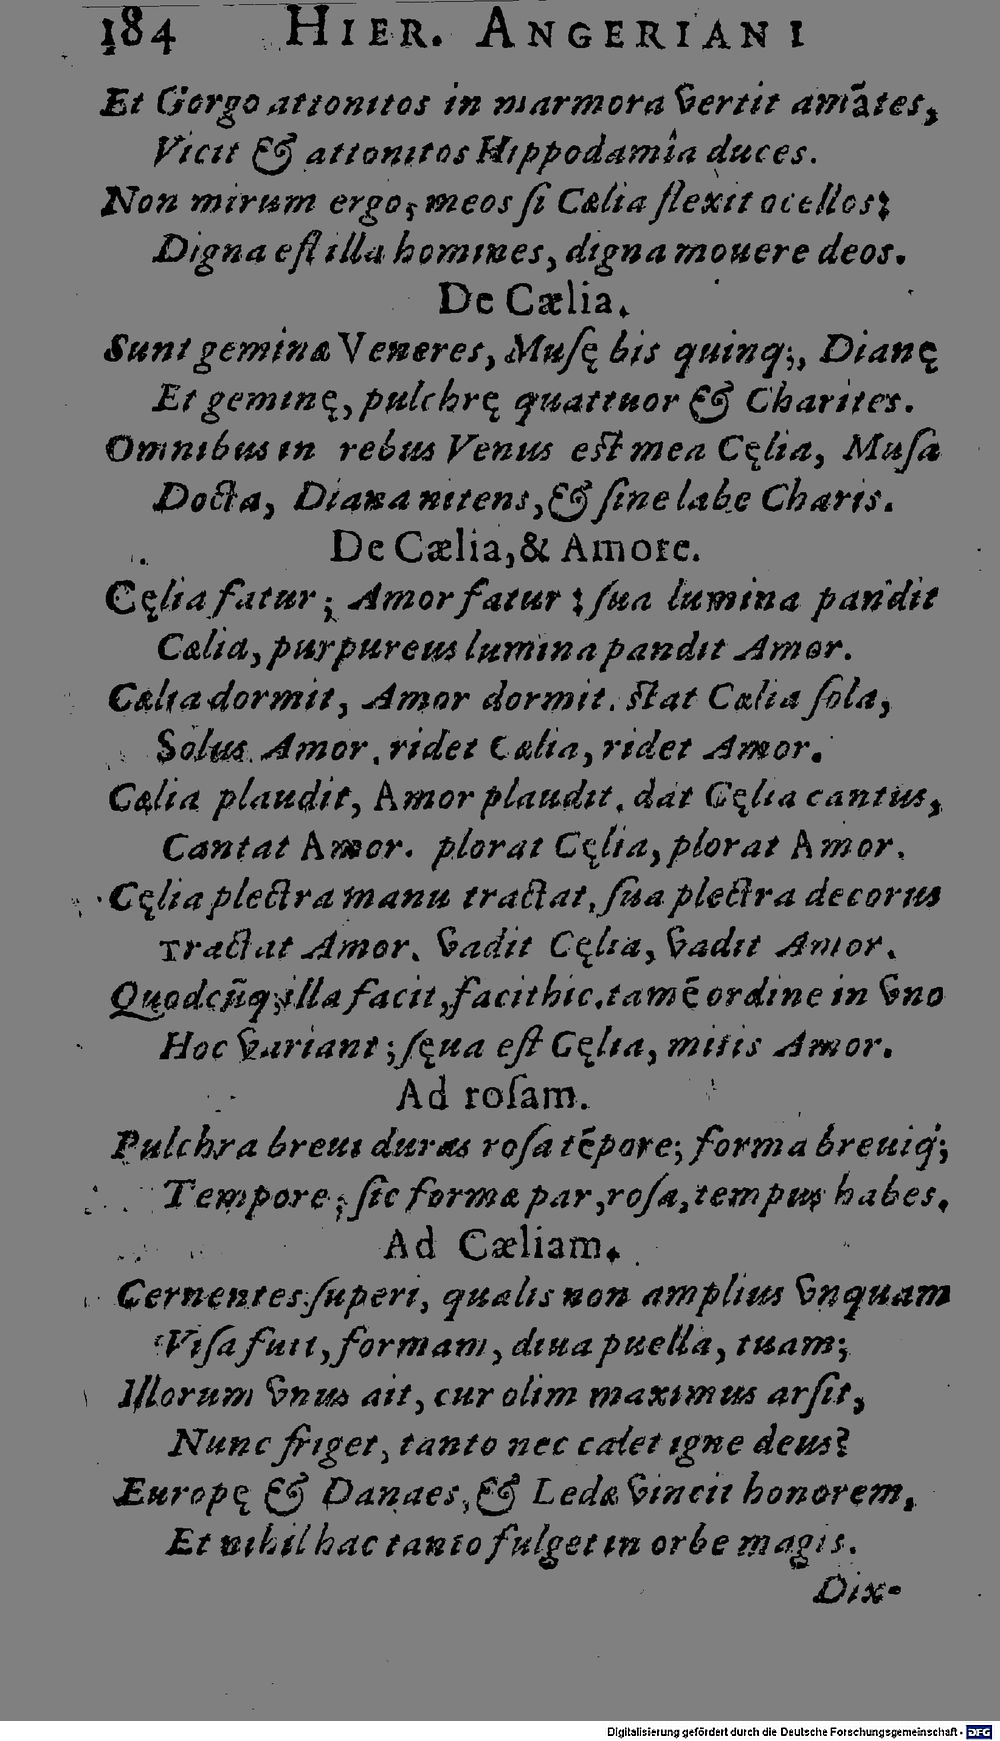 184 HIER. ANGERIANI
Et Gorgo attonitos in marmora vertit amãtes,
Vicit & attonitos Hippodamîa duces.
Non mirum ergo, meos ſi Cælia flexit ocellos?
Digna eſt illa homines, digna mouere deos.
De Cælia.
Sunt geminæ Veneres, Muſę bis quinq;, Dianę
Et geminę, pulchrę quattuor & Charites.
Omnibus in rebus Venus eſt mea Cęlia, Muſa
Docta, Diana nitens, & ſine labe Charis.
De Cælia, & Amore.
Cęlia fatur; Amor fatur: ſua lumina pandit
Cælia, purpureus lumina pandit Amor.
Cælia dormit, Amor dormit. ſtat Cælia ſola,
Solus Amor. ridet Cælia, ridet Amor.
Cælia plaudit, Amor plaudit. dat Cęlia cantus,
Cantat Amor. plorat Cęlia, plorat Amor.
Cęlia plectra manu tractat, ſua plectra decorus
Tractat Amor. vadit Cęlia, vadit Amor.
Quodcũq; illa facit, facit hic. tamē ordine in vno
Hoc variant; ſęua eſt Cęlia, mitis Amor.
Ad roſam.
Pulchra breui duras roſa tēpore; forma breuiq́;
Tempore; ſic formæ par, roſa, tempus habes.
Ad Cæliam.
Cernentes ſuperi, qualis non amplius vnquam
Viſa fuit, formam, diua puella, tuam;
Illorum vnus ait, cur olim maximus arſit,
Nunc friget, tanto nec calet igne deus?
Europę & Danaes, & Ledæ vincit honorem,
Et nihil hac tanto fulget in orbe magis.
Dix-
Digitalisierung gefördert durch die Deutsche Forschungsgemeinschaft - DFG